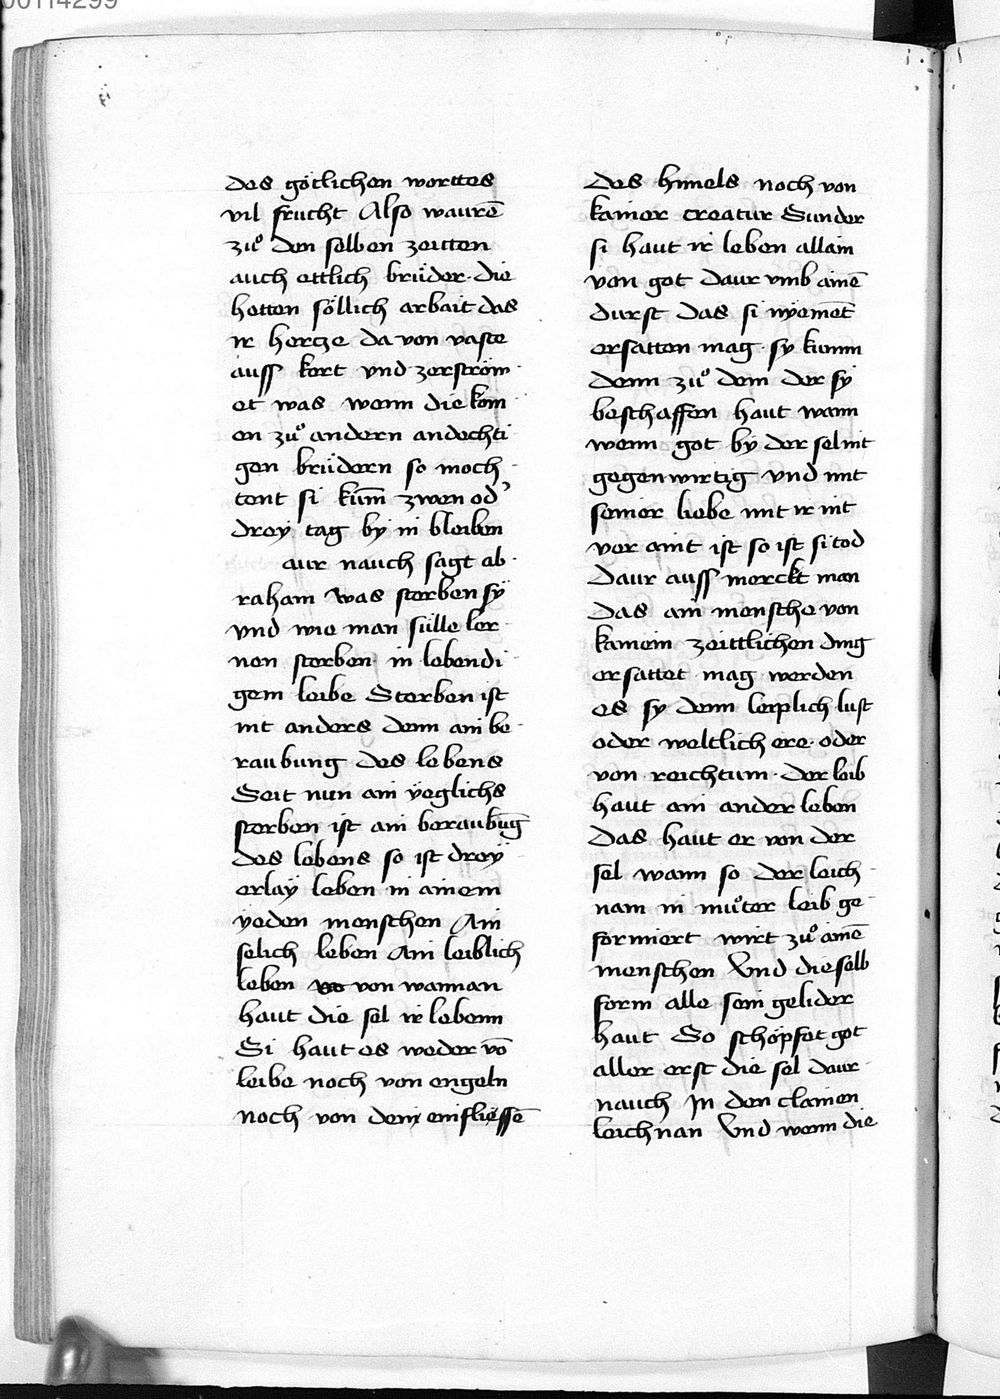 00114299
des götlichen worttes
vil frucht Also waurē
zuͦ den selben zeitten
auch ettlich brüder · die
hetten söllich arbait das
ir hercze da von vaste
auss kert vnd zerströw ·
et was wenn die kom
en zuͦ andern andechti ·
gen brüdern so moch ·
tent si kum̄ zwen od’
drey tag by in bleiben
aur nauch sagt ab ·
raham was sterben sÿ
vnd wie man sülle ler ·
nen sterben · in lebendi ·
gem leibe Sterben ist
nit anders denn ain be ·
raubung des lebens
Seit nun ain yeglichs
sterben ist ain beraubūg
des lebens so ist drey ·
erlaÿ leben in ainem
yeden menschen Ain
selich leben Ain leiblich
leben von wannan
haut die sel ir lebenn
Si haut es weder vō
leibe noch von engeln
noch von dem einfliessē
des himels noch von
kainer creatur Sunder
si haut ir leben allain
von got daur vmb ainē
durst das si nyemet
ersatten mag · sy kumm
denn zuͦ dem der sÿ
beschaffen haut wann
wenn got bÿ der sel nit
gegenwirtig vnd mit
seiner liebe mit ir nit
ver aint ist so ist si tod
Daur auss merckt man
das ain mensche von
kainem zeittlichen ding
ersattet mag werden
es sy denn leiplich lust
oder weltlich ere · oder
von reichtum · der leib
haut ain ander leben
das haut er von der
sel wann so der leich ·
nam in muͦter leib ge ·
formiert wirt zuͦ ainē
menschen Vnd die selb
form alle sein gelider
haut So schöpfet got
aller erst die sel daur ·
nauch In den clainen
leichnan Vnd wenn die